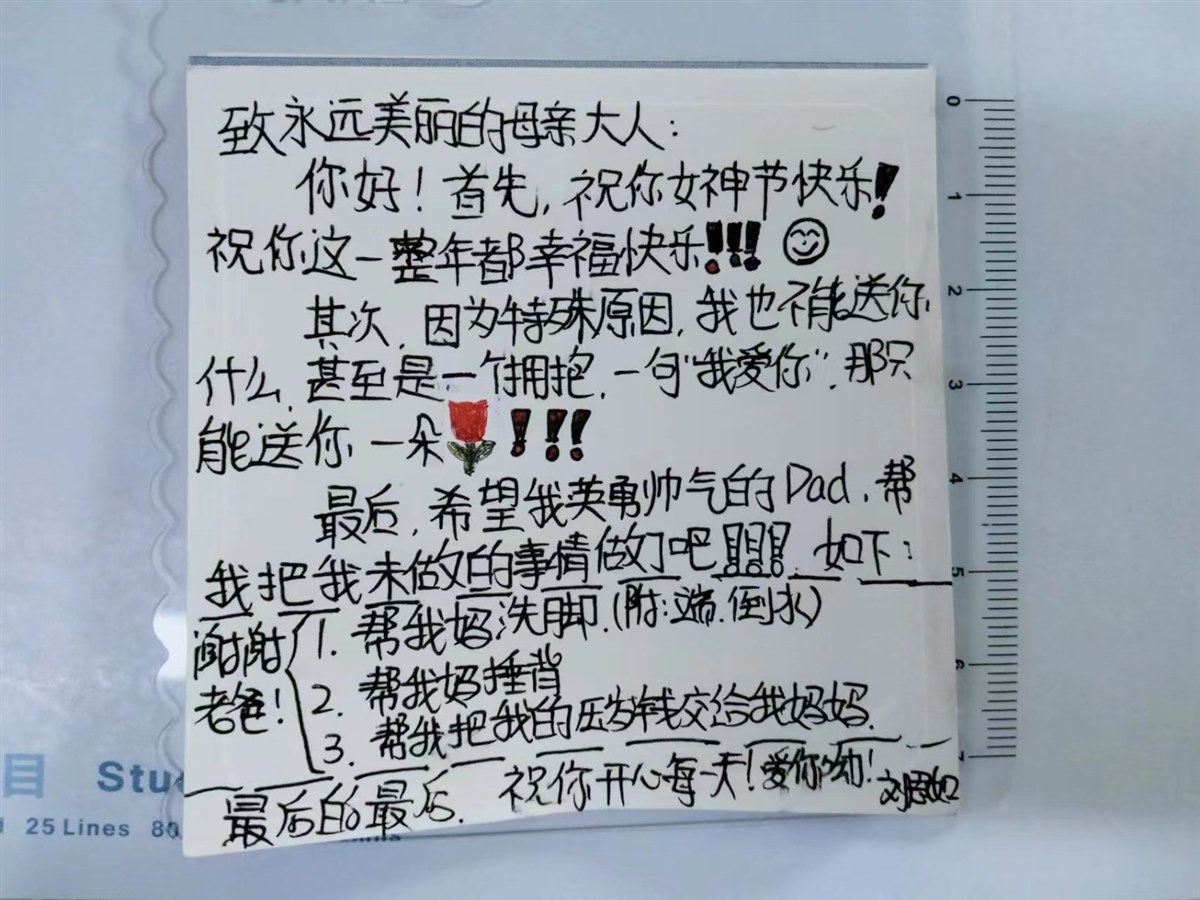 致永远美丽的母亲大人:
你好!首先,祝你女神节快乐!
祝你这一整年都幸福快乐!!!
其次,因为特殊原因,我也不能送你
什么,甚至是一个拥抱,一句"我爱你",那只
能送你一朵!!!
最后,希望我英勇帅气的Dad,帮
我把我未做的事情做了吧!!!!!如下:
谢谢老爸!
1. 帮我妈洗脚.(附:端.倒水)
2. 帮我妈捶背
3. 帮我把我的压岁钱交给我妈妈.
最后的最后,祝你开心每一天!爱你呦!
0 1 2 3 4 5 6 7
目 Stu
25 Lines 80